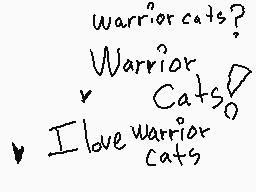 warrior cats?
Warrior
Cats!
I love warrior
cats